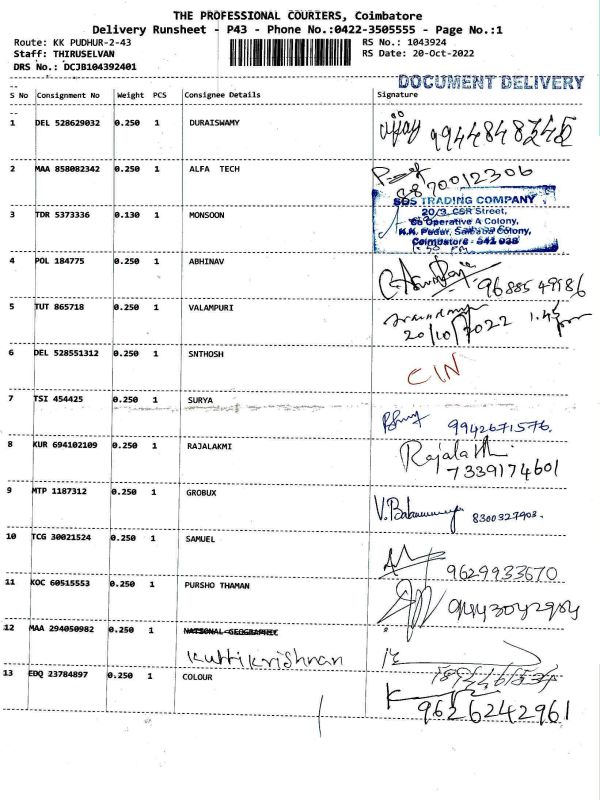 THE PROFESSIONAL COURIERS, Coimbatore
Delivery Runsheet - P43 - Phone No.:0422-3505555 - Page No.:1
Route: KK PUDHUR-2-43 RS No.: 1043924
Staff: THIRUSELVAN RS Date: 20-Oct-2022
DRS No.: DCJB104392401
DOCUMENT DELIVERY
S No Consignment No Weight PCS Consignee Details Signature
1 DEL 528629032 0.250 1 DURAISWAMY vijay
2 MAA 858082342 0.250 1 ALFA TECH 8870012306
SDS TRADING COMPANY
20/3, CSR Street,
3 TDR 5373336 0.130 1 MONSOON Co Operative A Colony,
K.K. Pudur, Saibaba Colony,
Coimbatore - 641 038
4 POL 184775 0.250 1 ABHINAV 9688549986
5 TUT 865718 0.250 1 VALAMPURI 1.45 pm
20/10/2022
6 DEL 528551312 0.250 1 SNTHOSH CIN
7 TSI 454425 0.250 1 SURYA 9942671576.
8 KUR 694102109 0.250 1 RAJALAKMI
7339174601
9 MTP 1187312 0.250 1 GROBUX 8300327903.
10 TCG 30021524 0.250 1 SAMUEL 9629933670
11 KOC 60515553 0.250 1 PURSHO THAMAN
12 MAA 294050982 0.250 1 NATIONAL GEOGRAPHIC
Kuttikrishnan
13 EDQ 23784897 0.250 1 COLOUR
9626242961